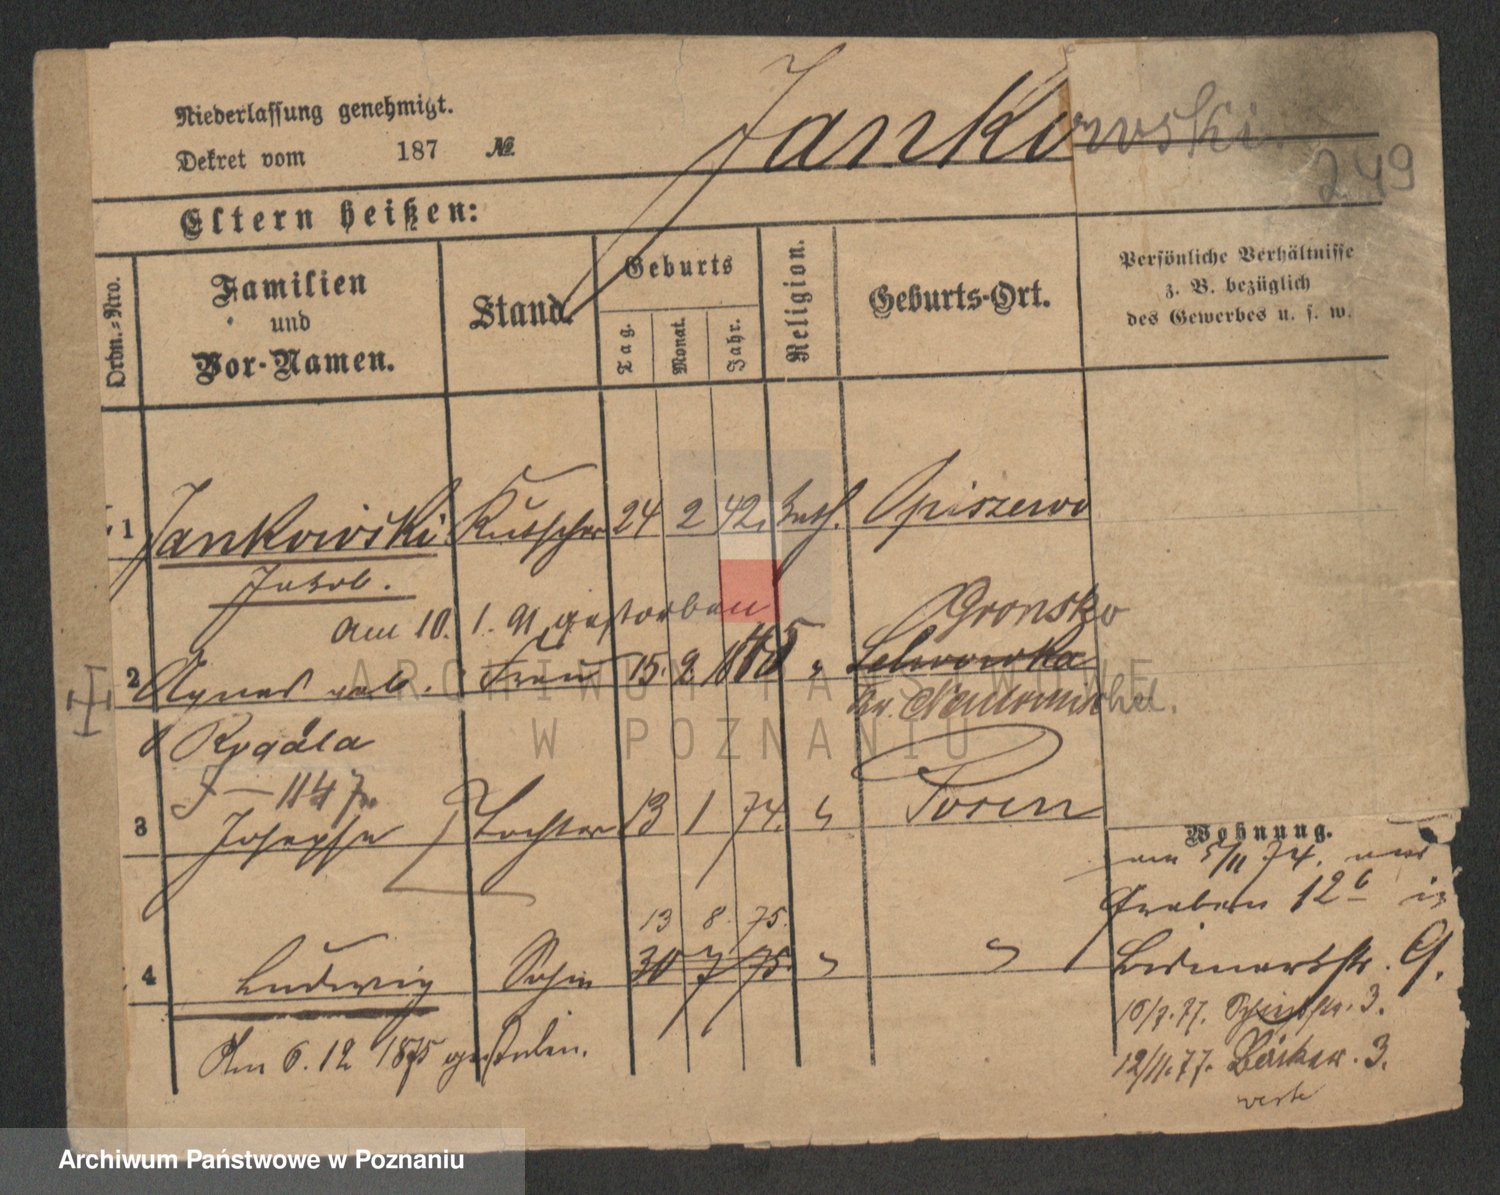 Niederlassung genehmigt.
Dekret vom 187 №
Jankowski
249
Eltern heißen:
Ordn.-Nro.
Familien und Vor-Namen.
Stand.
Geburts
Tag.
Monat.
Jahr.
Religion.
Geburts-Ort.
Persönliche Verhältnisse
z. B. bezüglich
des Gewerbes u. s. w.
1 Jankowski Kutscher 24 2 42. kath. Opiszewo
Jakob.
am 10. 1. 91 gestorben
Gronsko
2 Agnes geb. Frau 15. 2 1845 "
Kr. Neutomischel.
Rygala
3 Josepha Tochter 13 1 74. " Posen
Wohnung.
am 5/11 74. von
Graben 12b in
13 8. 75.
4 Ludwig Sohn 30 7 75. " "
Bismarckstr. 9.
10/7. 77. 3.
Am 6. 12 1875 gestorben.
12/11. 77. Bäcker. 3.
ARCHIWUM PAŃSTWOWE
W POZNANIU
Archiwum Państwowe w Poznaniu